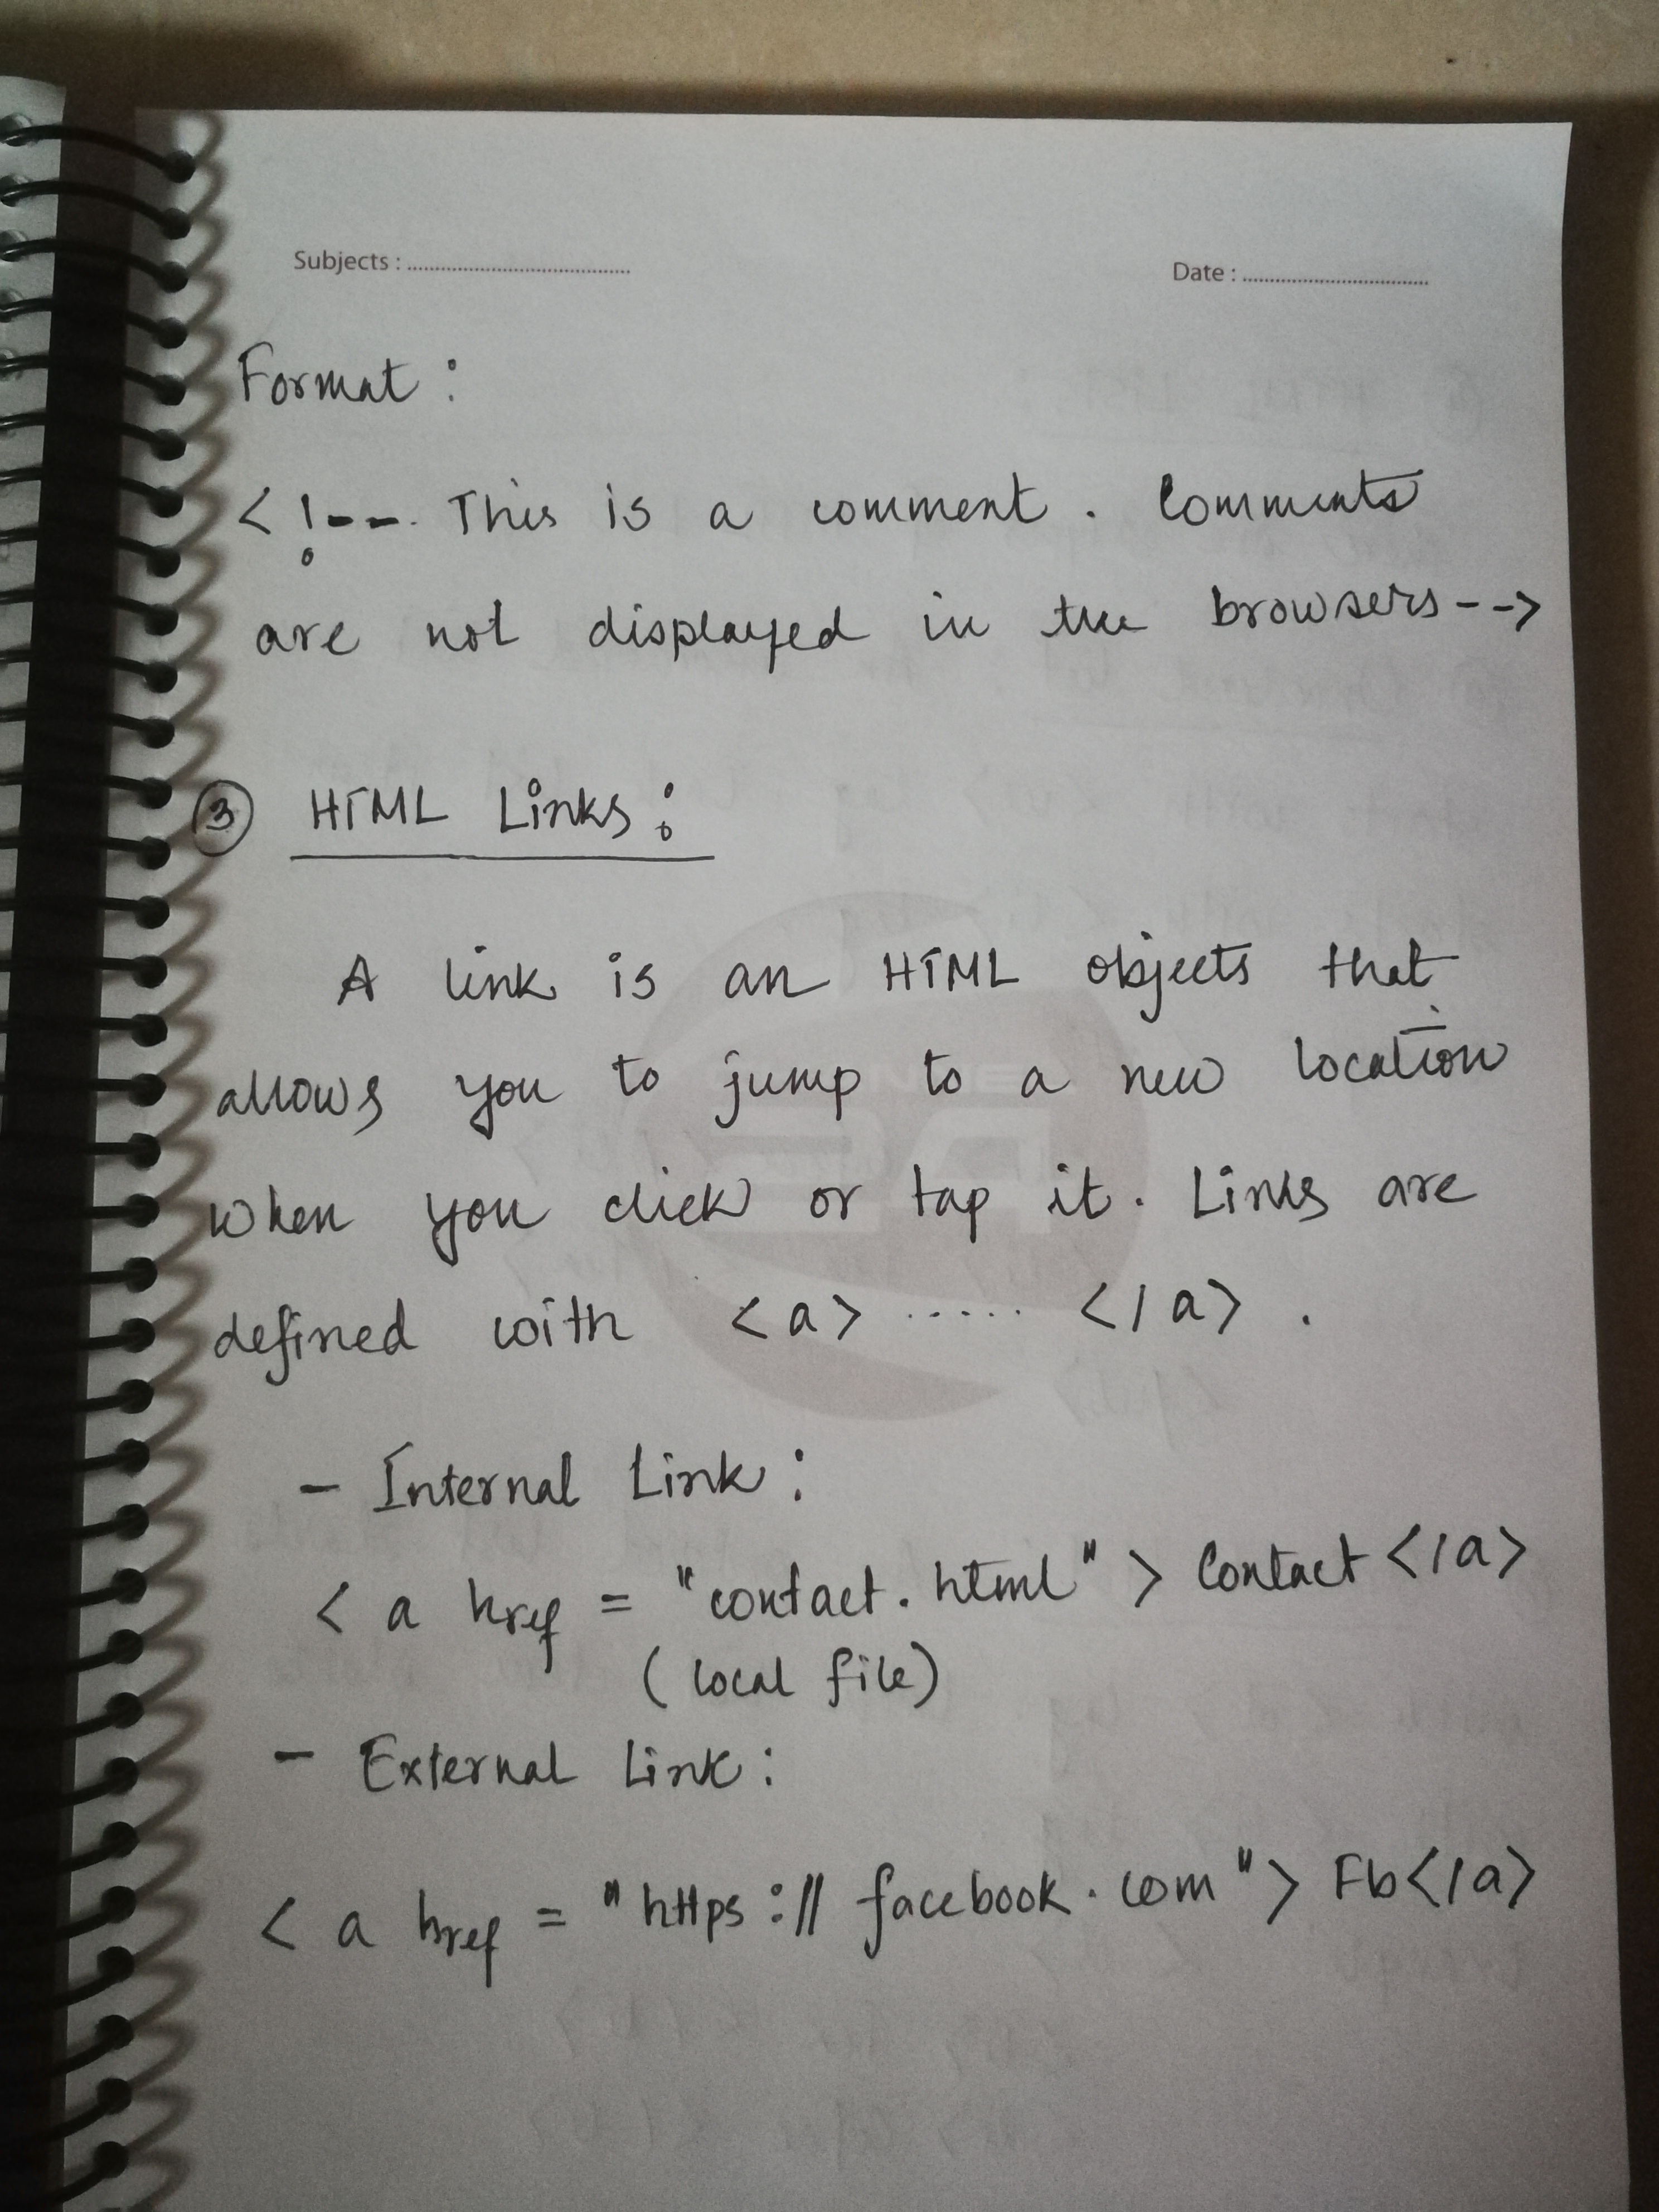 Subjects : ........................................ Date : ........................................
Format :
<!-- This is a comment. Comments
are not displayed in the browsers-->
3 HTML Links :
A link is an HTML objects that
allows you to jump to a new location
when you click or tap it. Links are
defined with <a> ..... </a> .
- Internal Link :
< a href = "contact.html" > Contact </a>
(local file)
- External Link :
< a href = "https://facebook.com" > Fb</a>